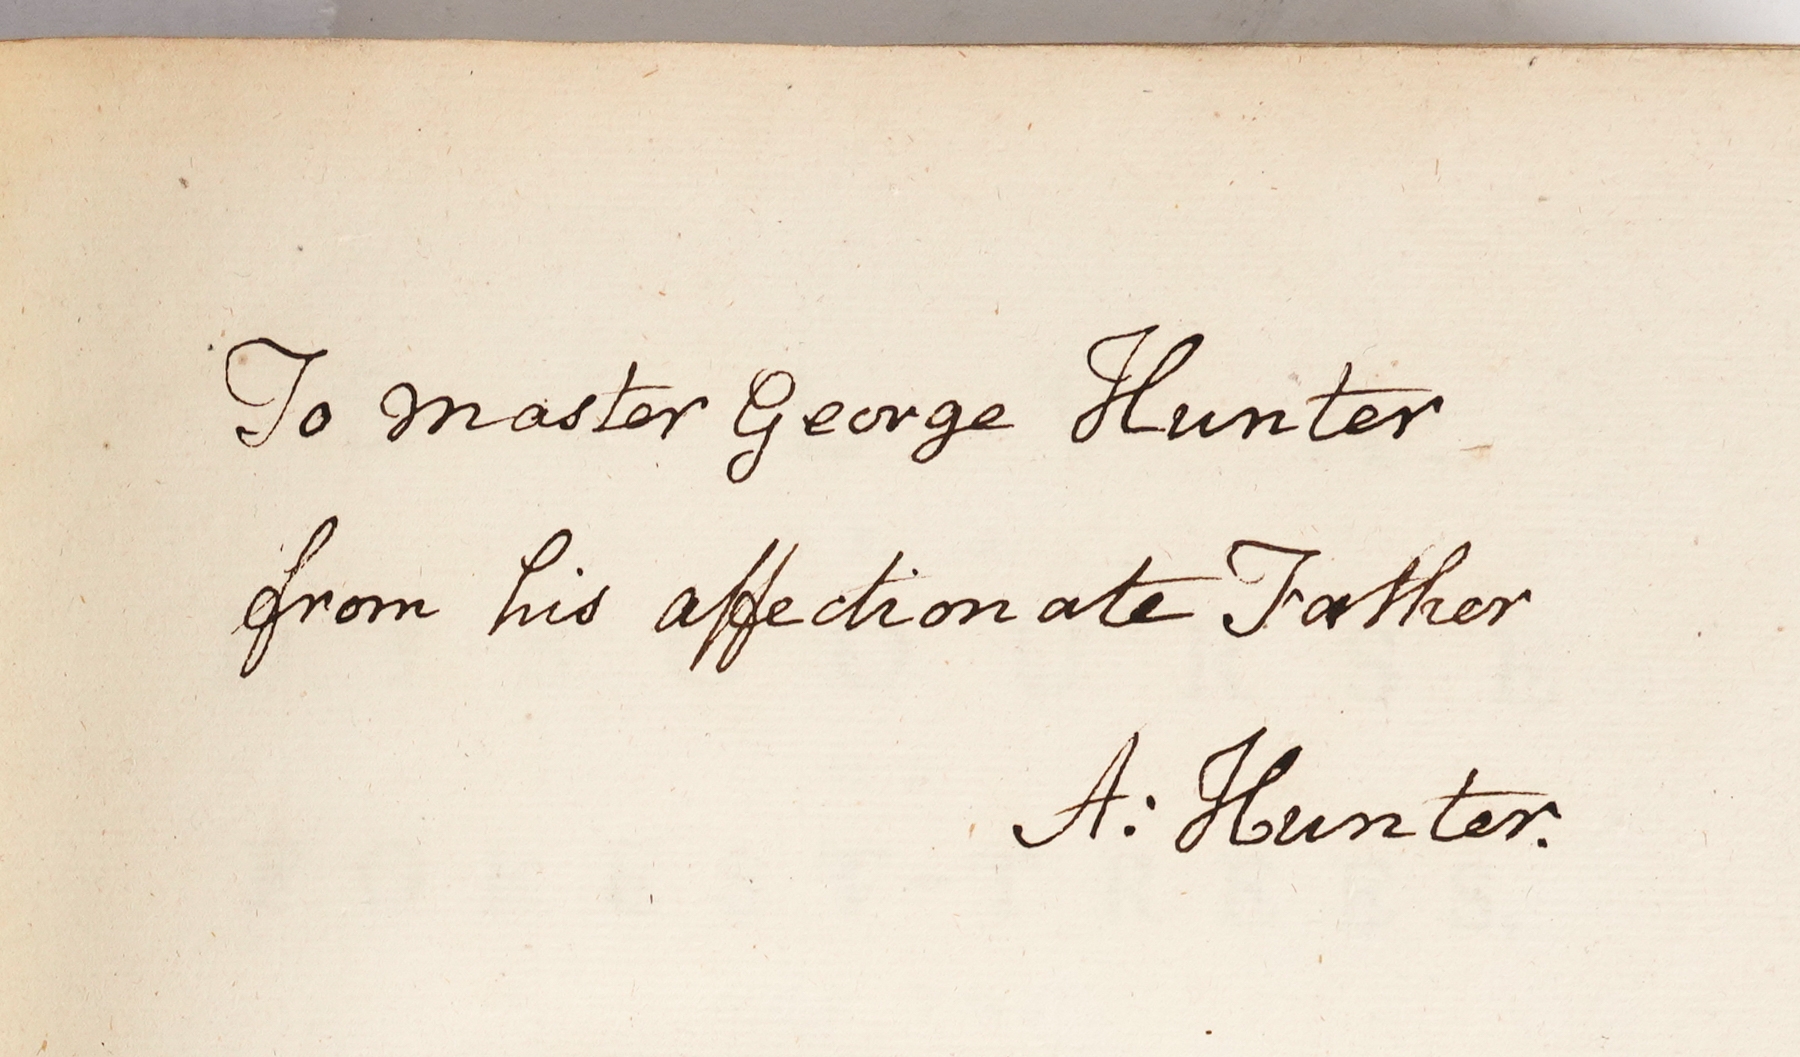 To Master George Hunter
from his affectionate Father
A: Hunter.